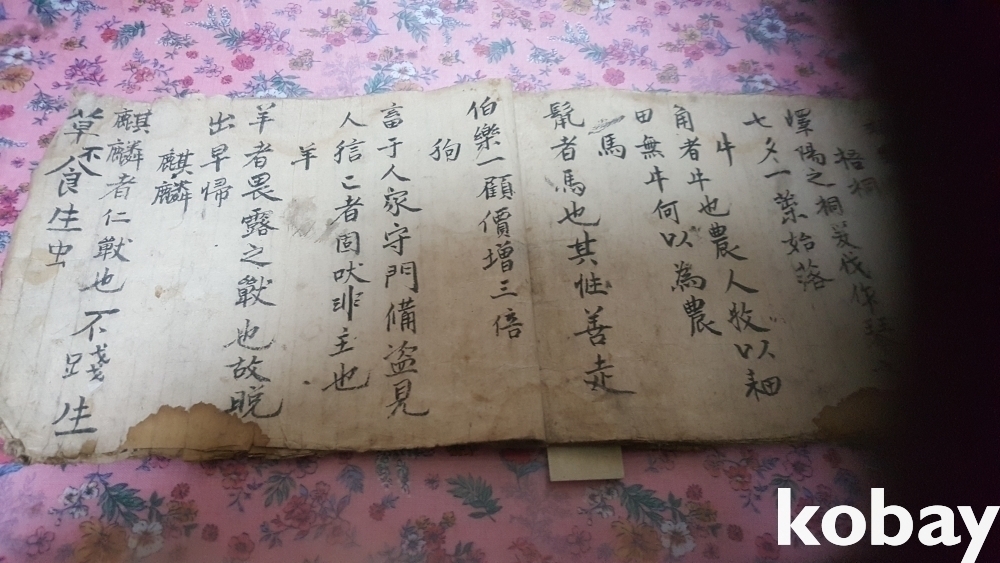 梧桐
嶧陽之桐爰伐作琴
七夕一葉始落
牛
角者牛也農人牧以
田無牛何以為農
馬
鬣者馬也其性善走
伯樂一顧價增三倍
狗
畜于人家守門備盜見
人狺〻者固吠非主也
羊
羊者畏露之獸也故晚
出早歸
麒麟
麒麟者仁獸也不踐生
草不食生虫
kobay